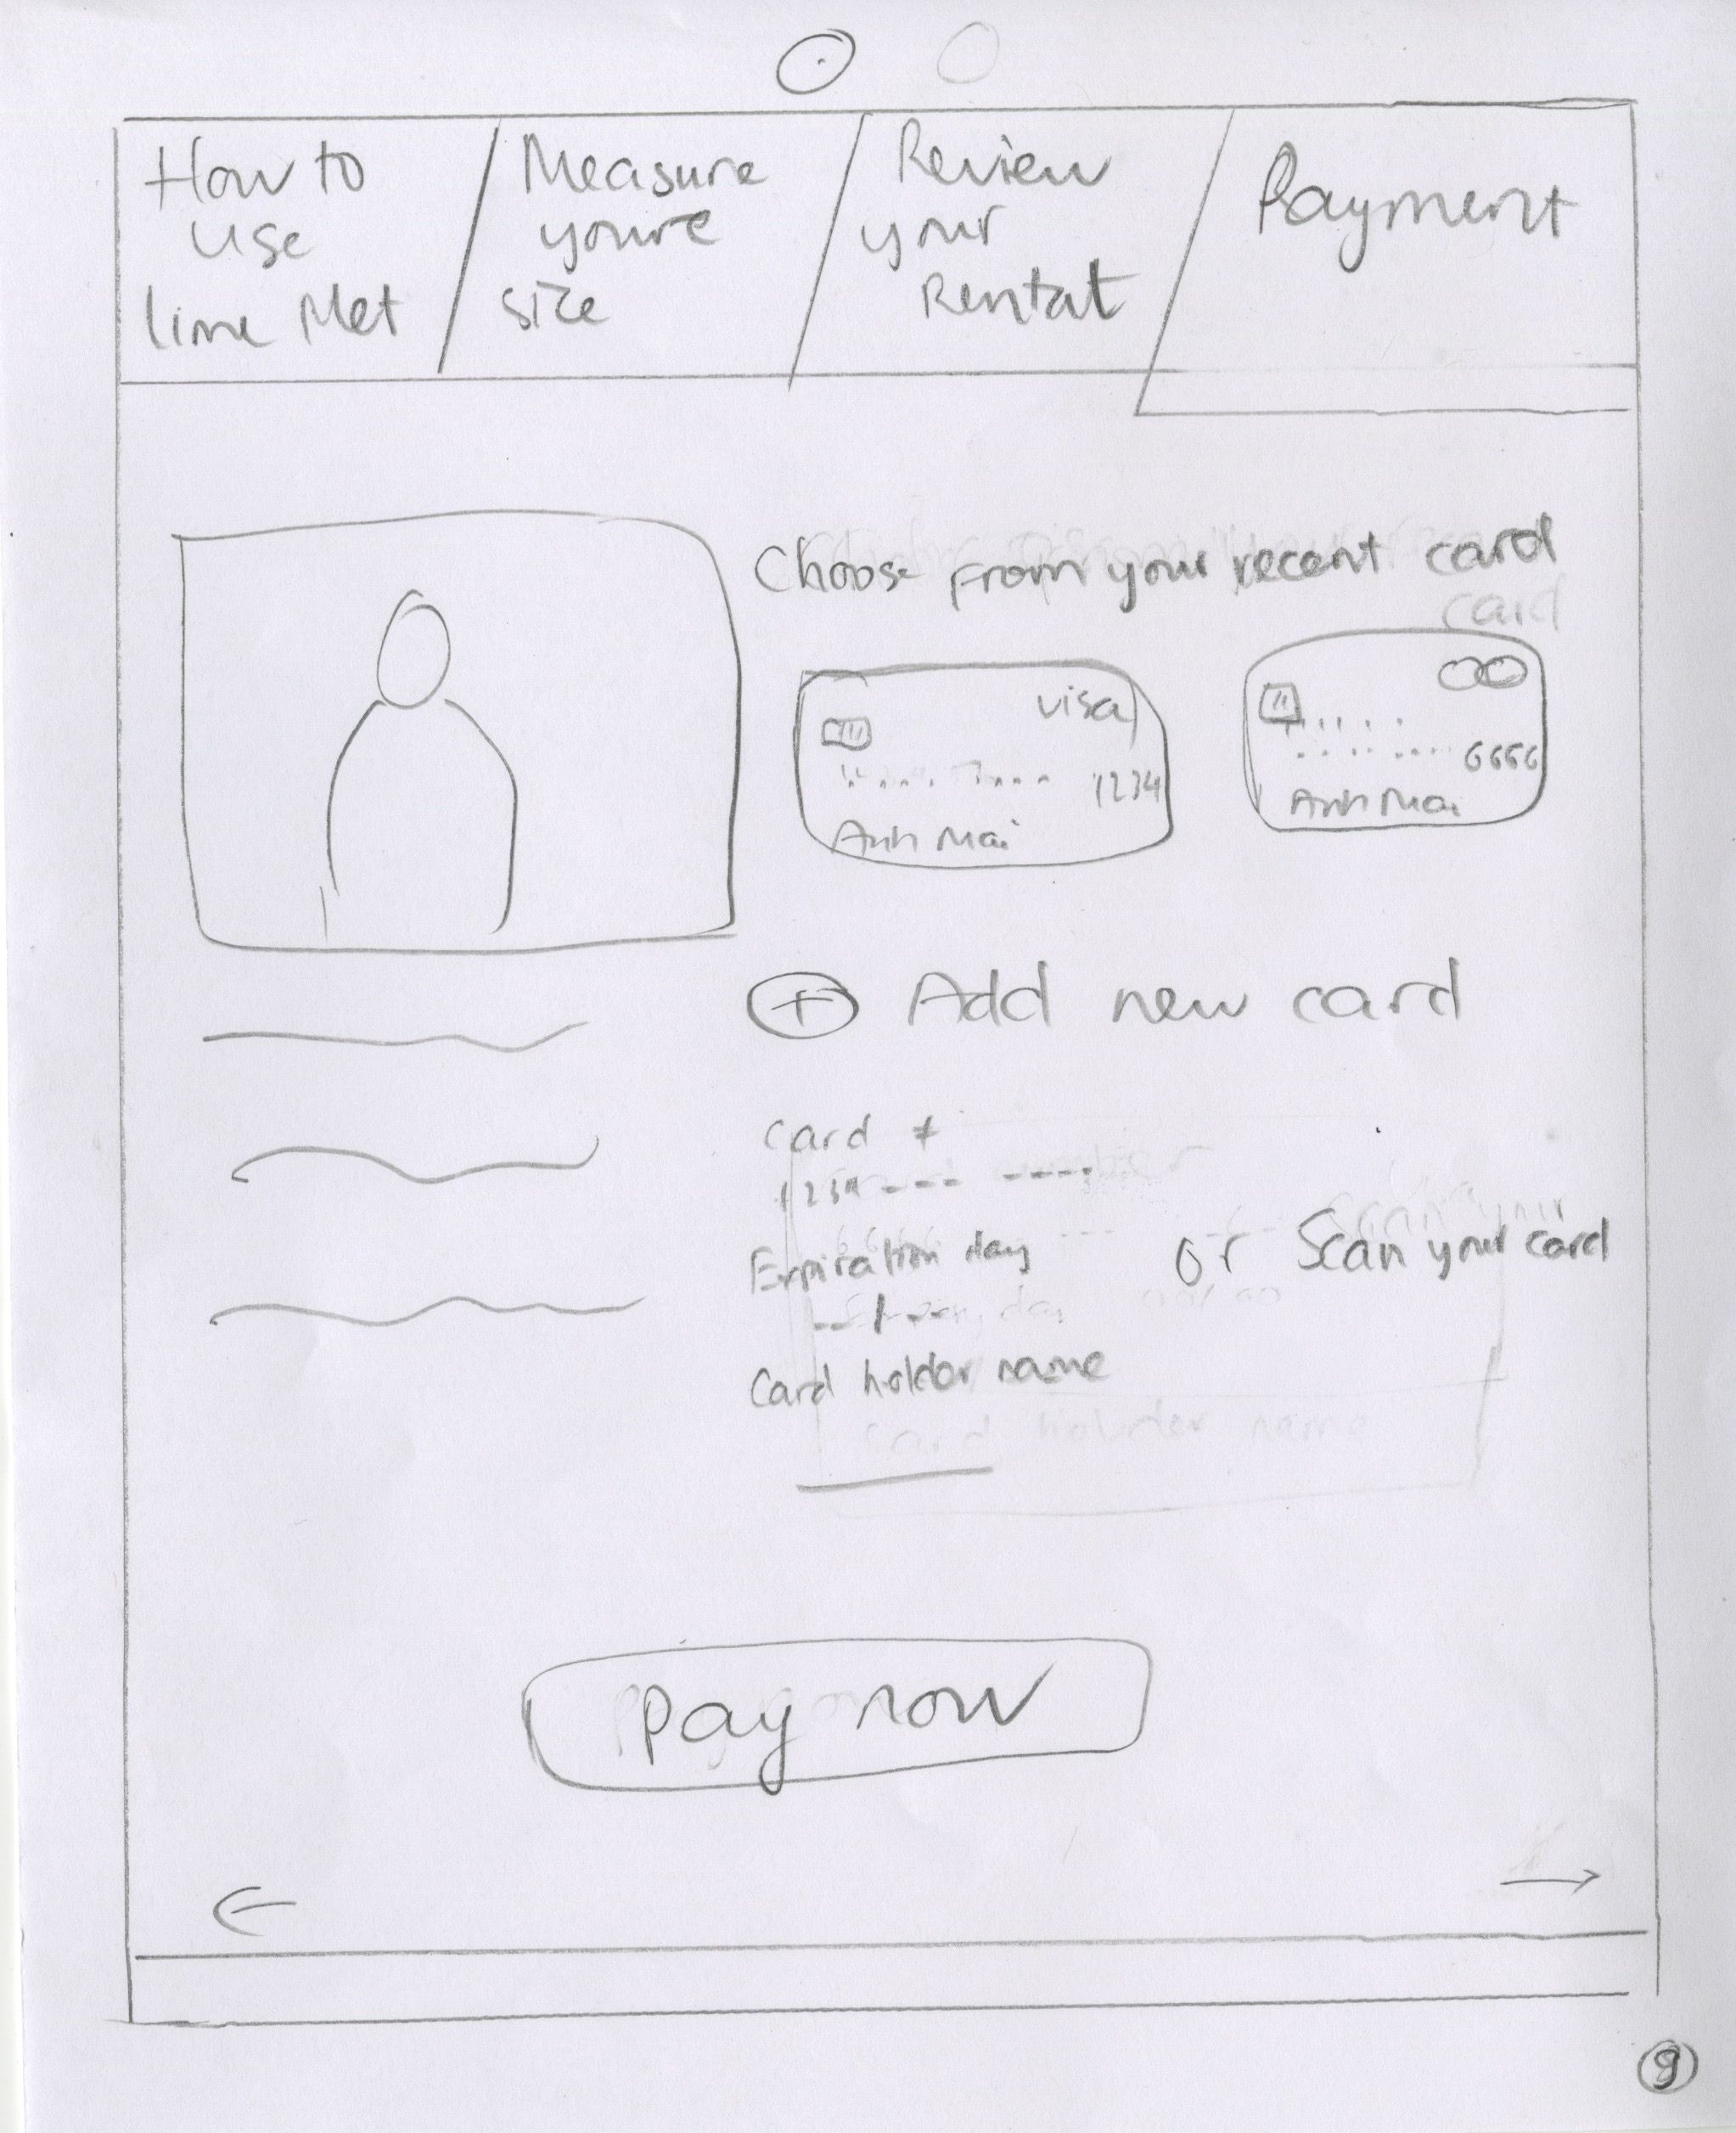 How to
use
lime Met
Measure
youre
size
Review
your
Rental
Payment
Choose From your recent card
card
visa
1234
Anh Mai
6666
Anh Mai
+ Add new card
Card #
1234 --- ----
Expiration day
--/--
or Scan your card
Card holder name
Card holder name
Pay now
9